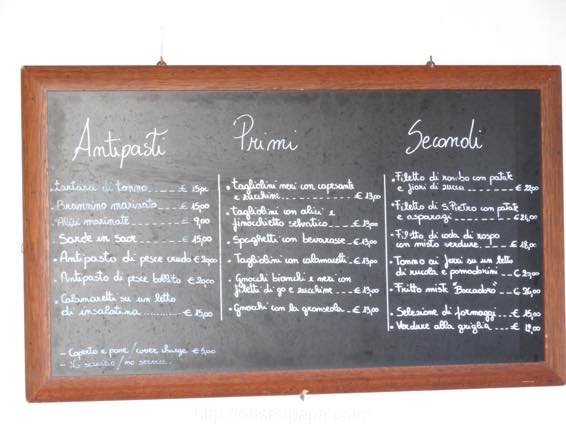 Antipasti
. tartara di tonno ---- € 15,00
. Branzino marinato ---- € 15,00
. Alici marinate ---- 9,00
. Sarde in saor ---- € 15,00
. Antipasto di pesce crudo € 20,00
. Antipasto di pesce bollito € 20,00
. Calamaretti su un letto
di insalatina ---- € 15,00
- Coperto e pane / cover charge € 3,00
- servizio / no service
Primi
. tagliolini neri con capesante
e zucchine ---- € 13,00
. tagliolini con alici e
finocchietto selvatico --- € 13,00
. Spaghetti con bevarasse -- € 13,00
. Tagliolini con calamaretti - € 13,00
. Gnocchi bianchi e neri con
filetti di go e zucchine --- € 13,00
. Gnocchi con la granseola -- € 13,00
Secondi
. Filetto di rombo con patate
e fiori di zucca ---- € 22,00
. Filetto di S.Pietro con patate
e asparagi ---- € 21,00
. Filetto di coda di rospo
con misto verdure - € 18,00
. Tonno ai ferri su un letto
di rucola e pomodorini -- € 20,00
. Fritto misto "Boccadoro" - €
. Selezione di formaggi --- € 15,00
. Verdure alla griglia --- € 12,00